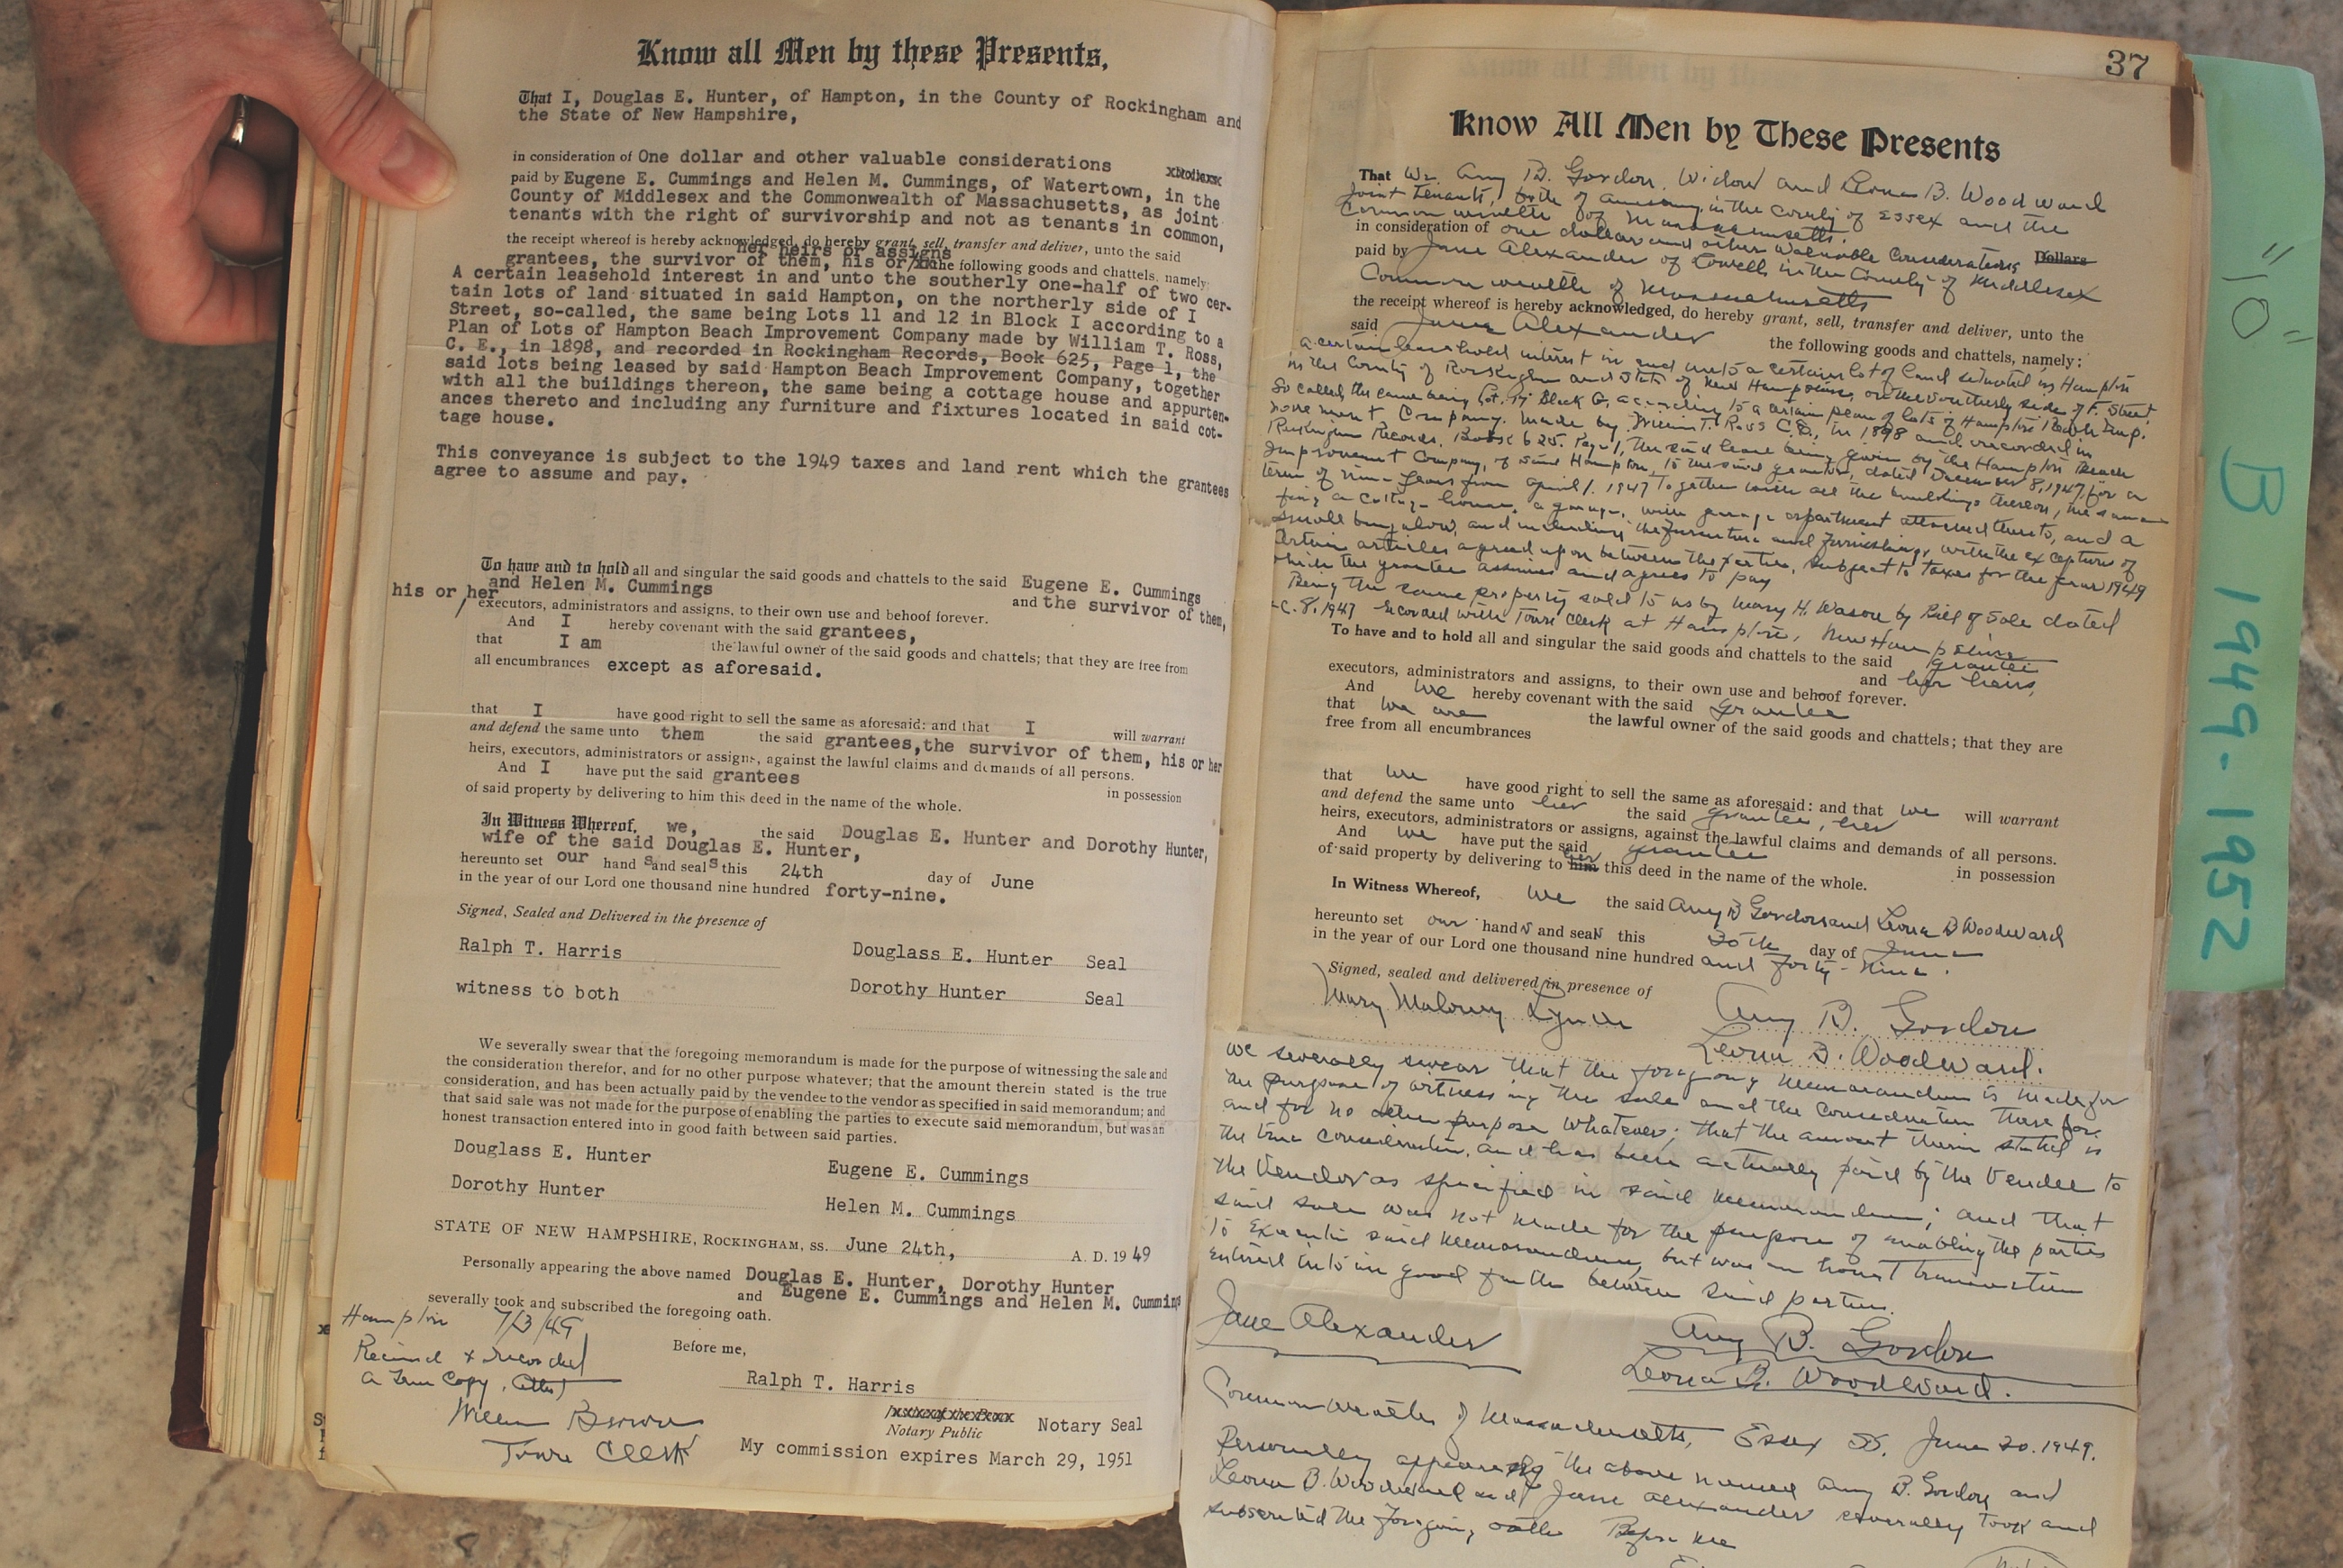 Know all Men by these Presents,
That I, Douglas E. Hunter, of Hampton, in the County of Rockingham and
the State of New Hampshire,
in consideration of One dollar and other valuable considerations
paid by Eugene E. Cummings and Helen M. Cummings, of Watertown, in the
County of Middlesex and the Commonwealth of Massachusetts, as joint
tenants with the right of survivorship and not as tenants in common,
the receipt whereof is hereby acknowledged, do hereby grant, sell, transfer and deliver, unto the said
her heirs or assigns
grantees, the survivor of them, his or/ the following goods and chattels, namely:
A certain leasehold interest in and unto the southerly one-half of two cer-
tain lots of land situated in said Hampton, on the northerly side of I
Street, so-called, the same being Lots 11 and 12 in Block I according to a
Plan of Lots of Hampton Beach Improvement Company made by William T. Ross,
C. E., in 1898, and recorded in Rockingham Records, Book 625, Page 1, the
said lots being leased by said Hampton Beach Improvement Company, together
with all the buildings thereon, the same being a cottage house and appurten-
ances thereto and including any furniture and fixtures located in said cot-
tage house.
This conveyance is subject to the 1949 taxes and land rent which the grantees
agree to assume and pay.
To have and to hold all and singular the said goods and chattels to the said Eugene E. Cummings
and Helen M. Cummings and the survivor of them,
his or her/ executors, administrators and assigns, to their own use and behoof forever.
And I hereby covenant with the said grantees,
that I am the lawful owner of the said goods and chattels; that they are free from
all encumbrances except as aforesaid.
that I have good right to sell the same as aforesaid: and that I will warrant
and defend the same unto them the said grantees,the survivor of them, his or her
heirs, executors, administrators or assigns, against the lawful claims and demands of all persons.
And I have put the said grantees in possession
of said property by delivering to him this deed in the name of the whole.
In Witness Whereof, we, the said Douglas E. Hunter and Dorothy Hunter,
wife of the said Douglas E. Hunter,
hereunto set our hand s and seal s this 24th day of June
in the year of our Lord one thousand nine hundred forty-nine.
Signed, Sealed and Delivered in the presence of
Ralph T. Harris Douglass E. Hunter Seal
witness to both Dorothy Hunter Seal
We severally swear that the foregoing memorandum is made for the purpose of witnessing the sale and
the consideration therefor, and for no other purpose whatever; that the amount therein stated is the true
consideration, and has been actually paid by the vendee to the vendor as specified in said memorandum; and
that said sale was not made for the purpose of enabling the parties to execute said memorandum, but was an
honest transaction entered into in good faith between said parties.
Douglass E. Hunter Eugene E. Cummings
Dorothy Hunter Helen M. Cummings
STATE OF NEW HAMPSHIRE, ROCKINGHAM, ss. June 24th, A. D. 19 49
Personally appearing the above named Douglas E. Hunter, Dorothy Hunter
and Eugene E. Cummings and Helen M. Cummings
severally took and subscribed the foregoing oath.
Before me,
Ralph T. Harris
Notary Public Notary Seal
My commission expires March 29, 1951
Hampton 7/3/49
Received & recorded
A True Copy, Attest
William Brown
Town Clerk
37
Know All Men by These Presents
That We Amy B. Gordon, Widow and Leona B. Woodward
Joint Tenants, both of Amesbury, in the County of Essex and the
Commonwealth of Massachusetts.
in consideration of one dollar and other Valuable Considerations Dollars
paid by Jane Alexander of Lowell in the County of Middlesex
Commonwealth of Massachusetts
the receipt whereof is hereby acknowledged, do hereby grant, sell, transfer and deliver, unto the
said Jane Alexander the following goods and chattels, namely:
a certain leasehold interest in and unto a certain lot of land situated in Hampton
in the County of Rockingham and State of New Hampshire, on the southerly side of F. Street,
so called the same being Lot. 17 Block G, according to a certain plan of lots of Hampton Beach Imp-
rovement Company. made by William T. Ross C.E., in 1898 and recorded in
Rockingham Records, Book 625. Page 1, the said lease being given by the Hampton Beach
Improvement Company, of said Hampton, to the said grantors, dated December 8, 1947, for a
term of nine years from April 1. 1947 together with all the buildings thereon, the same
being a cottage house, a garage, with garage apartment attached thereto, and a
small bungalow, and including the furniture and furnishings, with the exception of
certain articles agreed upon between the parties, subject to taxes for the year 1949
which the grantee assumes and agrees to pay
Being the same property sold to us by Mary H. Wason by Bill of Sale dated
c. 8, 1947 recorded with Town Clerk at Hampton, New Hampshire
To have and to hold all and singular the said goods and chattels to the said grantee
and her heirs,
executors, administrators and assigns, to their own use and behoof forever.
And we hereby covenant with the said grantee
that we are the lawful owner of the said goods and chattels; that they are
free from all encumbrances
that we have good right to sell the same as aforesaid: and that we will warrant
and defend the same unto her the said grantee, her
heirs, executors, administrators or assigns, against the lawful claims and demands of all persons.
And we have put the said grantee in possession
of said property by delivering to him her this deed in the name of the whole.
In Witness Whereof, we the said Amy B Gordon and Leona B Woodward
hereunto set our hands and seals this 30th day of June
in the year of our Lord one thousand nine hundred and forty-nine.
Signed, sealed and delivered in presence of
Mary Maloney Lynch Amy B. Gordon
Leona B. Woodward.
We severally swear that the foregoing memorandum is made for
the purpose of witnessing the sale and the consideration therefor
and for no other purpose whatever; that the amount therein stated is
the true consideration, and has been actually paid by the Vendee to
the Vendor as specified in said memorandum; and that
said sale was not made for the purpose of enabling the parties
to execute said memorandum, but was an honest transaction
entered into in good faith between said parties.
Jane Alexander Amy B. Gordon
Leona B. Woodward.
Commonwealth of Massachusetts, Essex SS. June 30. 1949.
Personally appearing the above named Amy B. Gordon and
Leona B. Woodward and Jane Alexander severally took and
subscribed the foregoing oath Before me
"10" B 1949-1952